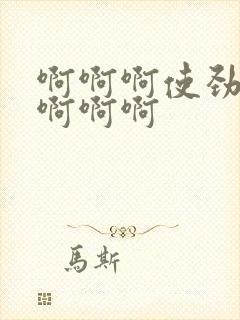 啊啊啊使劲
啊啊啊
馬斯